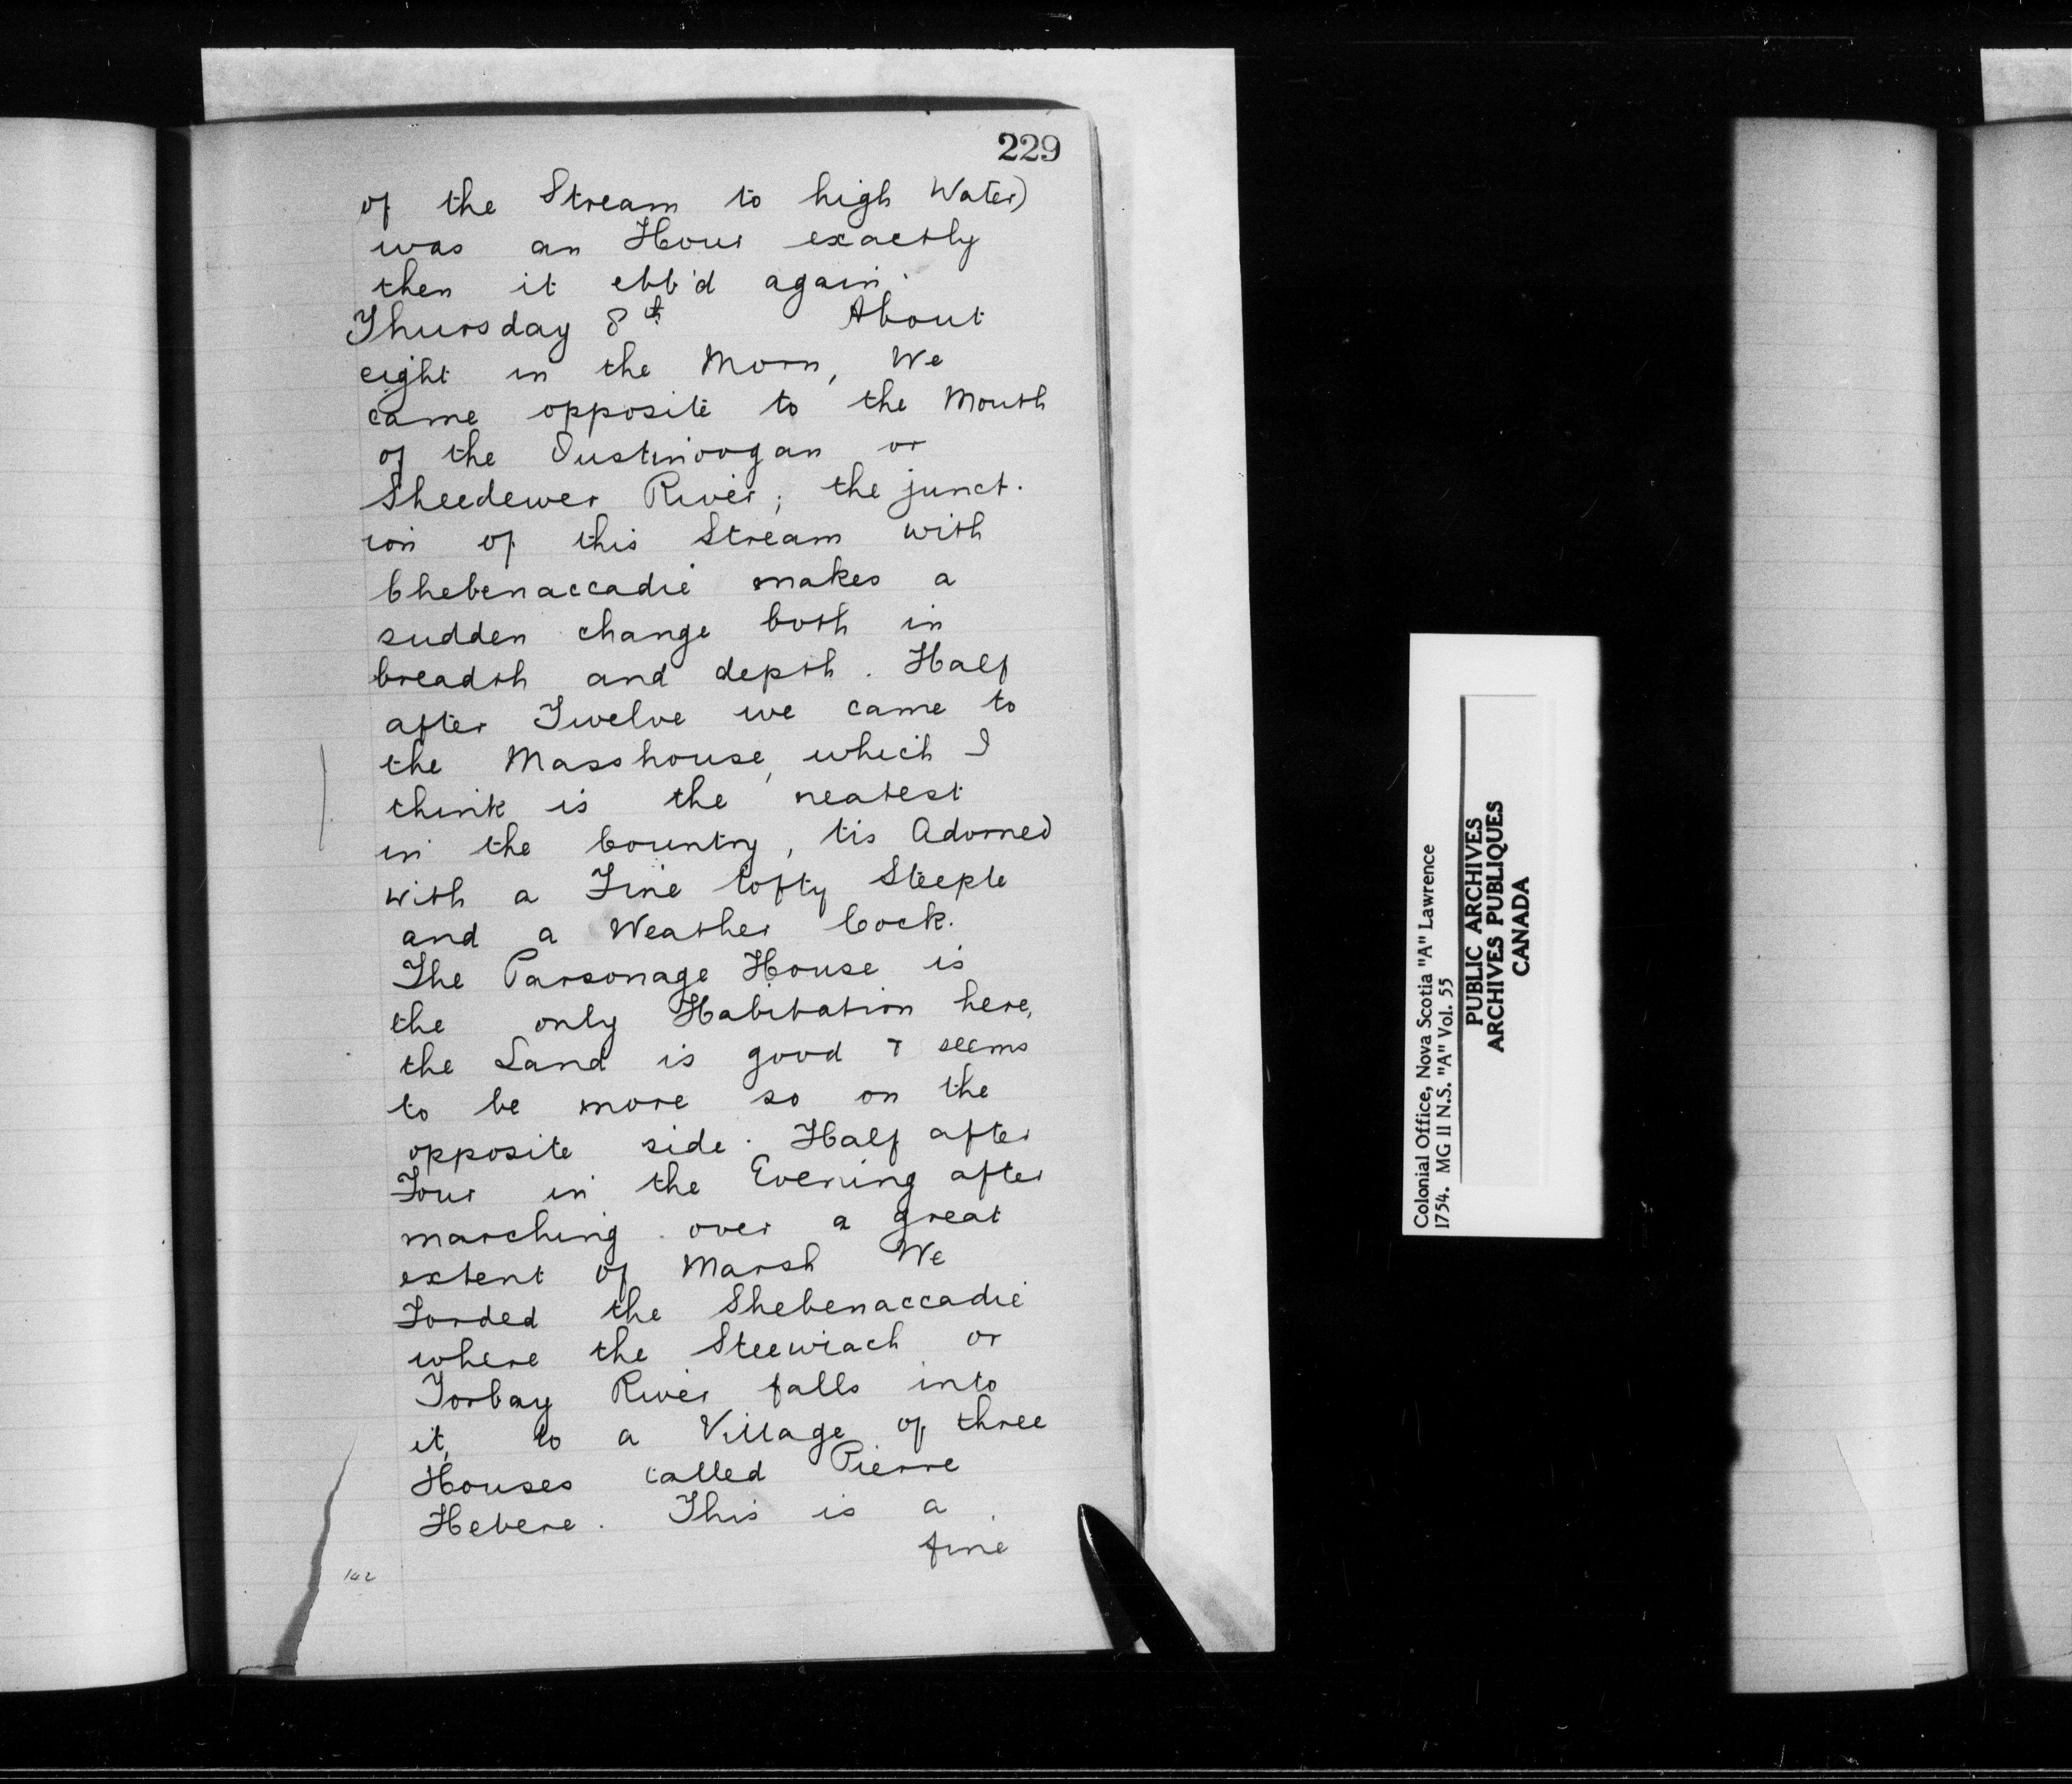 229
of the Stream to high Water)
was an Hour exactly
then it ebb'd again.
Thursday 8th About
eight in the Morn, We
came opposite to the Mouth
of the Oustinoogan or
Sheedewer River; the junct-
ion of this Stream with
Chebenaccadie makes a
sudden change both in
breadth and depth. Half
after Twelve we came to
the Masshouse, which I
think is the neatest
in the Country, tis Adorned
with a Fine lofty Steeple
and a Weather Cock.
The Parsonage House is
the only Habitation here,
the Land is good & seems
to be more so on the
opposite side. Half after
Four in the Evening after
marching over a great
extent of Marsh We
Forded the Shebenaccadie
where the Steewiach or
Torbay River falls into
it, to a Village of three
Houses called Pierre
Hebere. This is a
fine
142
Colonial Office, Nova Scotia "A" Lawrence
1754. MG 11 N.S. "A" Vol. 55
PUBLIC ARCHIVES
ARCHIVES PUBLIQUES
CANADA